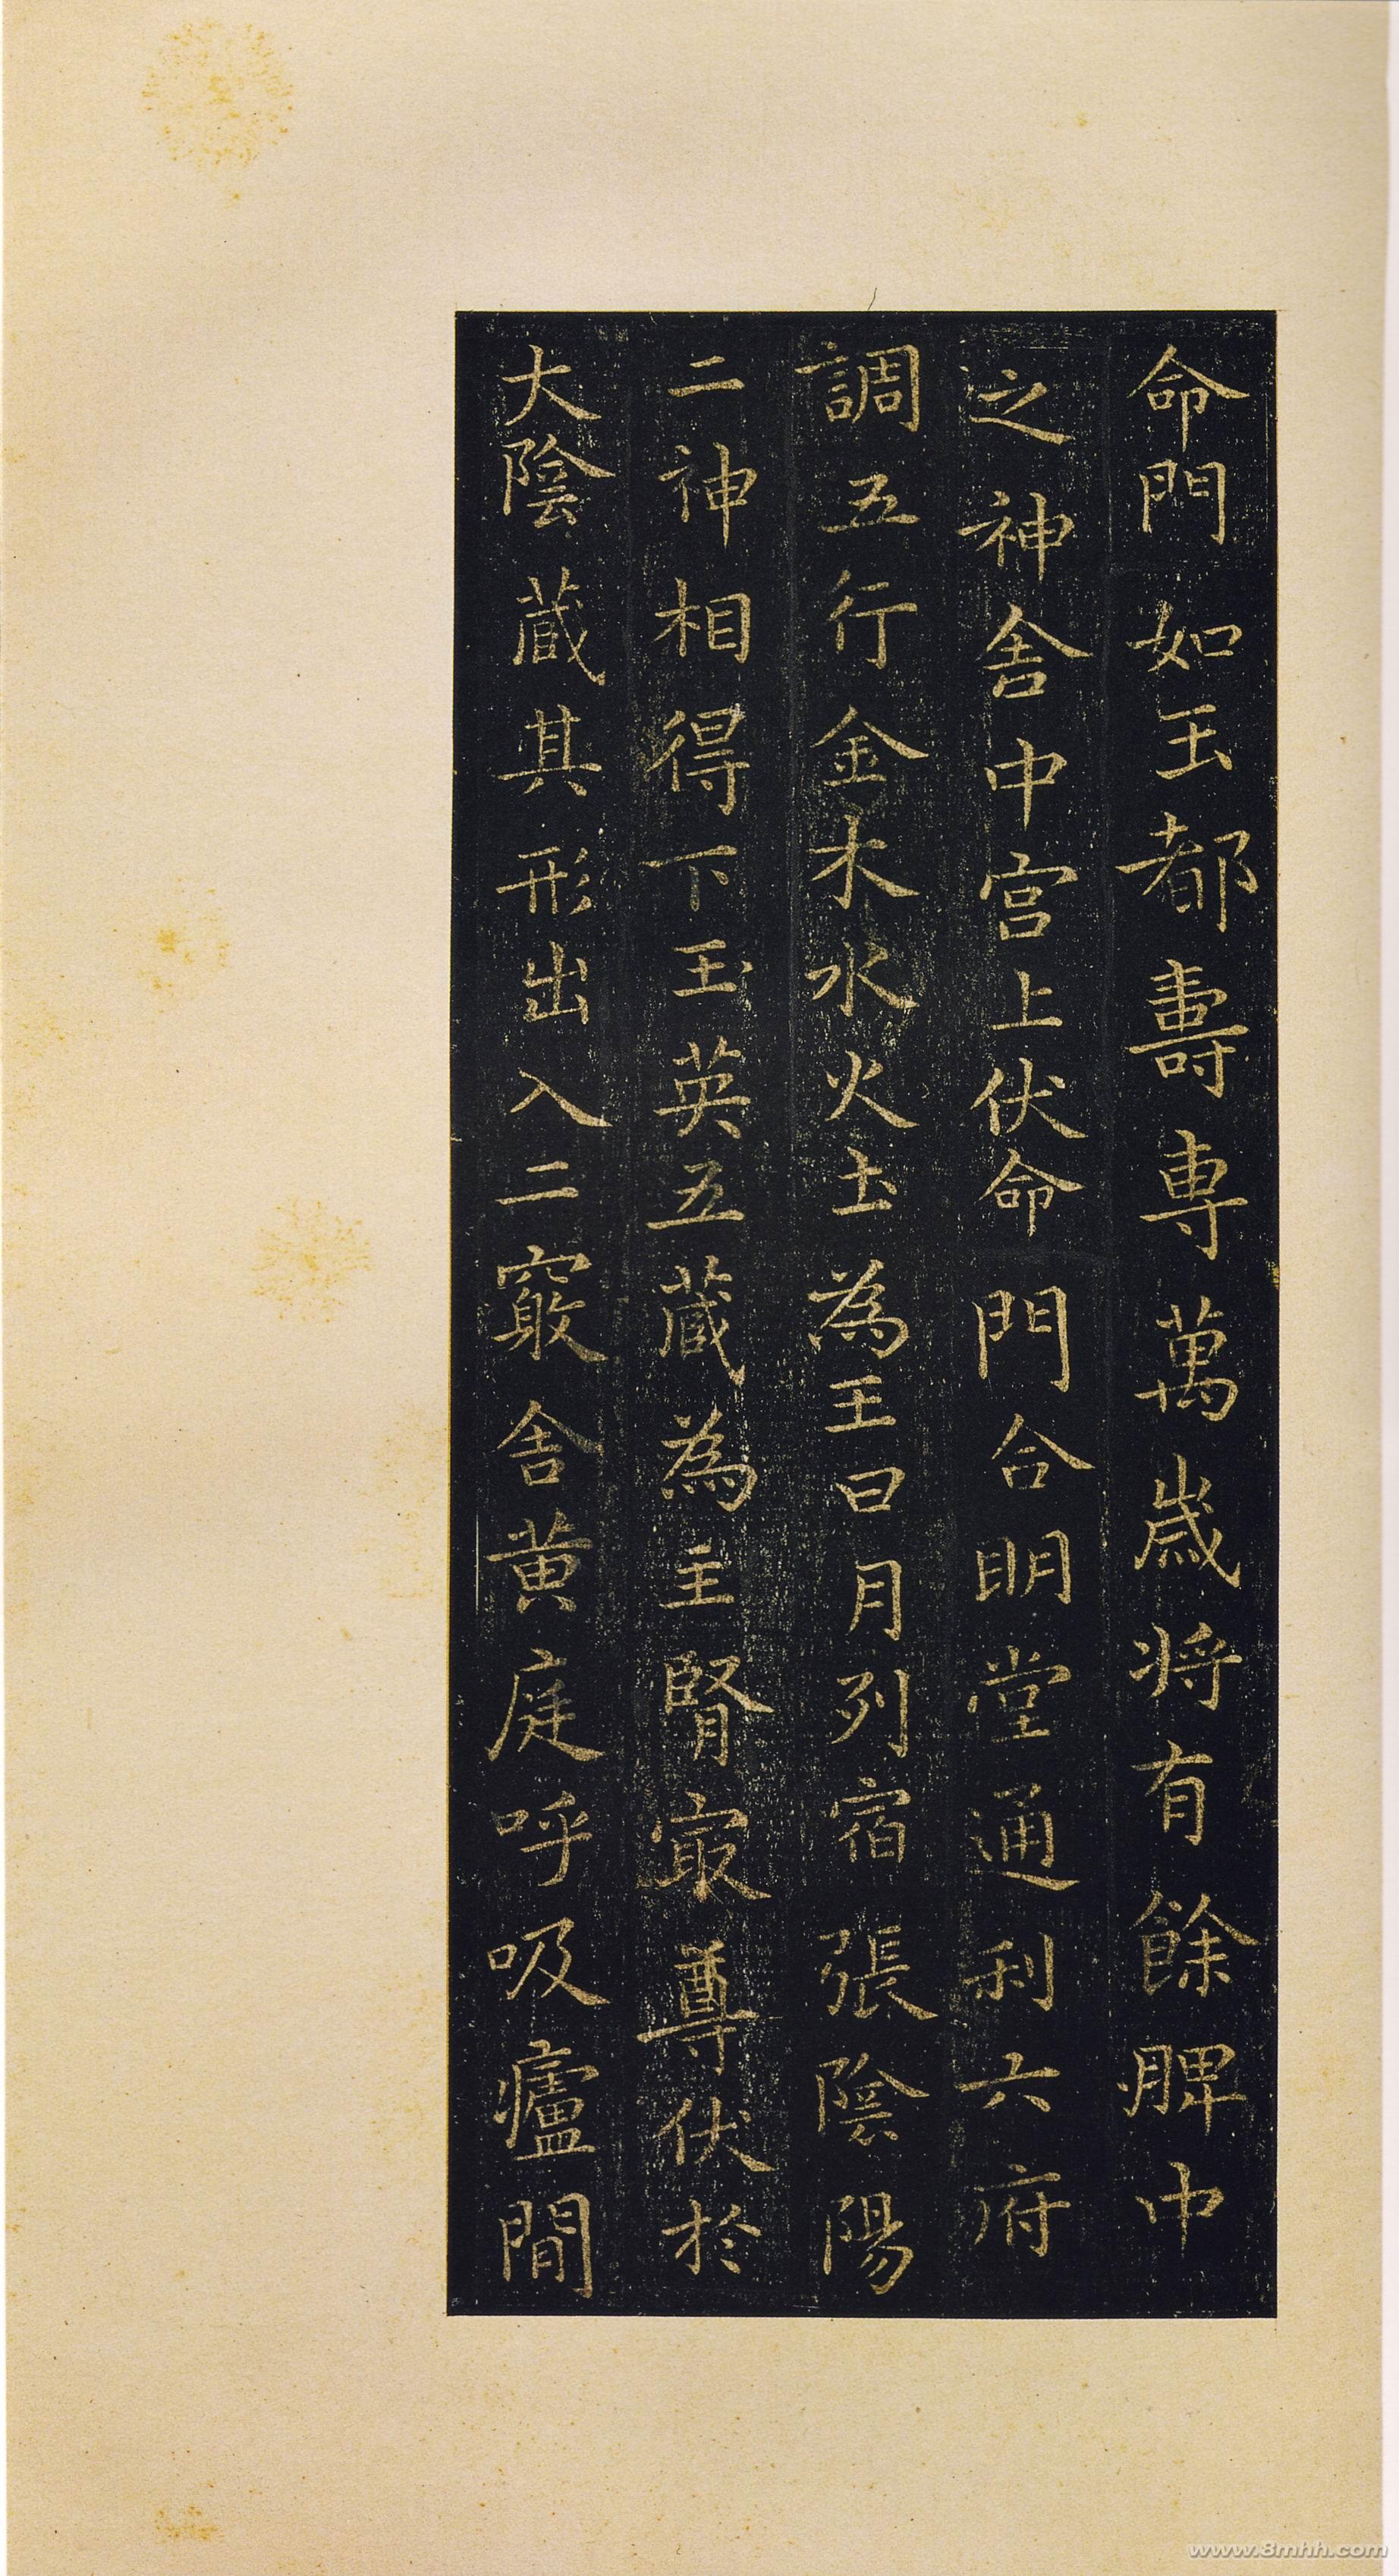 命門如玉都壽專萬歲將有餘脾中
之神舍中宮上伏命門合明堂通利六府
調五行金木水火土為王日月列宿張陰陽
二神相得下玉英五蔵為主腎㝡尊伏於
大陰蔵其形出入二竅舍黃庭呼吸廬間
www.8mhh.com